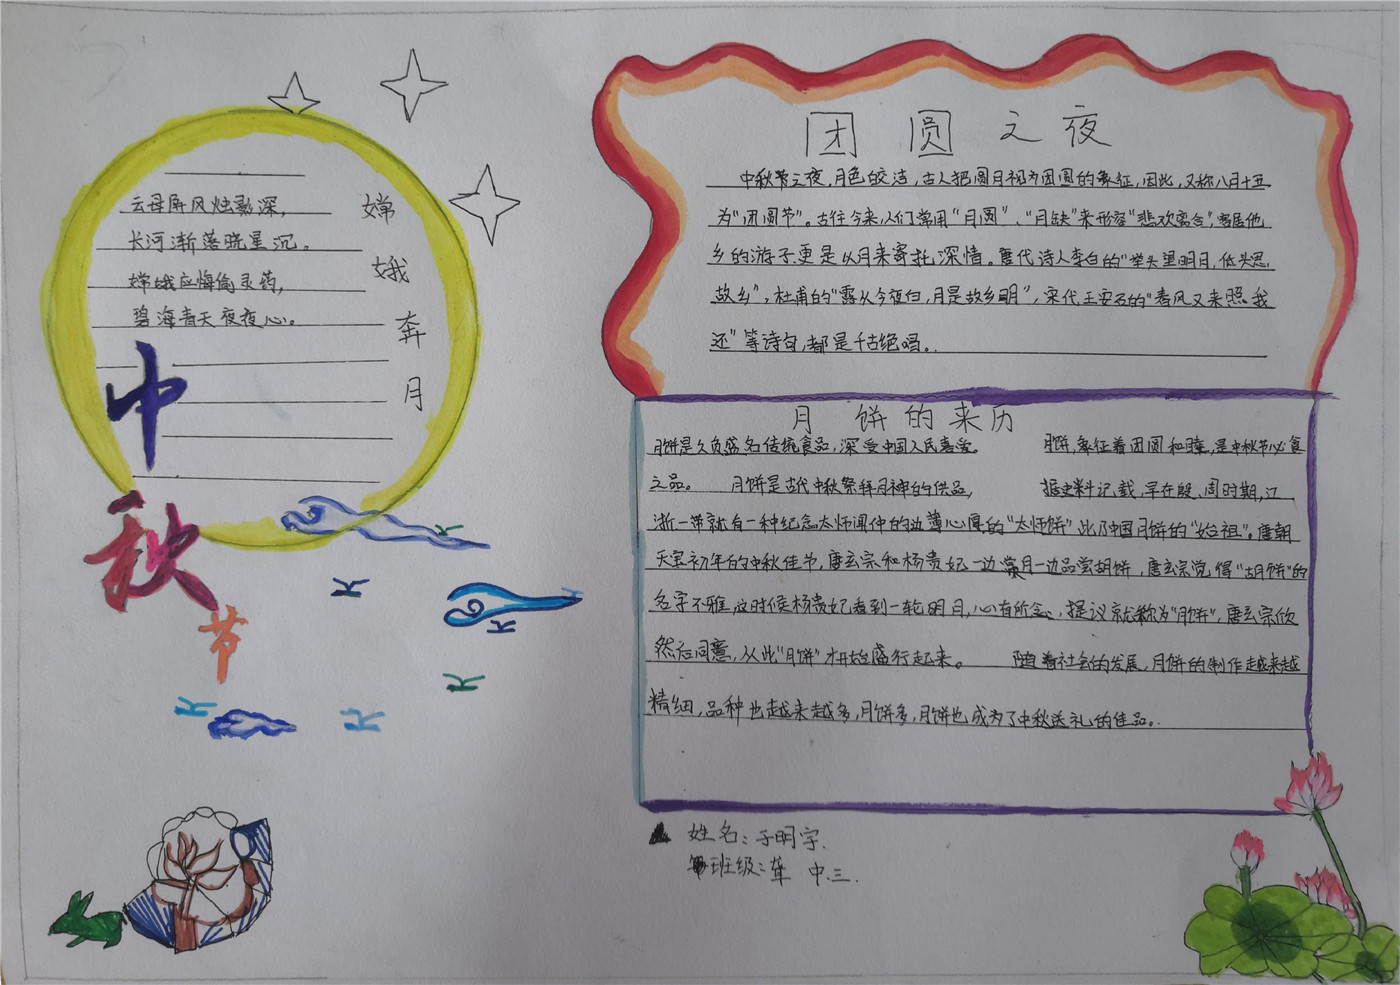 嫦娥奔月
云母屏风烛影深，
长河渐落晓星沉。
嫦娥应悔偷灵药，
碧海青天夜夜心。
中秋节
团圆之夜
中秋节之夜，月色皎洁，古人把圆月视为团圆的象征，因此，又称八月十五
为“团圆节”。古往今来，人们常用“月圆”、“月缺”来形容“悲欢离合”，客居他
乡的游子更是以月来寄托深情。唐代诗人李白的“举头望明月，低头思
故乡”，杜甫的“露从今夜白，月是故乡明”，宋代王安石的“春风又来照我
还”等诗句，都是千古绝唱。
月饼的来历
月饼是久负盛名传统食品，深受中国人民喜爱。 月饼，象征着团圆和睦，是中秋节必食
之品。 月饼是古代中秋祭拜月神的供品， 据史料记载，早在殷、周时期，江
浙一带就有一种纪念太师闻仲的边薄心厚的“太师饼”此乃中国月饼的“始祖”。唐朝
天宝初年的中秋佳节，唐玄宗和杨贵妃一边赏月一边品尝胡饼，唐玄宗觉得“胡饼”的
名字不雅，这时侯杨贵妃看到一轮明月，心有所念，提议就称为“月饼”，唐玄宗欣
然后同意，从此“月饼”才开始盛行起来。 随着社会的发展，月饼的制作越来越
精细，品种也越来越多，月饼多，月饼也成为了中秋送礼的佳品。
姓名：于明宇
班级：聋 中.三.